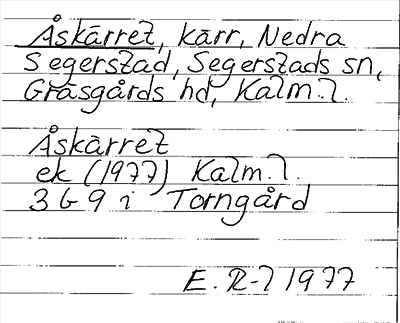 Åskärret, kärr, Nedra
Segerstad, Segerstads sn,
Gräsgårds hd, Kalm. l.
Åskärret
ek (1977) Kalm. l.
3 G 9 i Torngård
E. R-l 1977